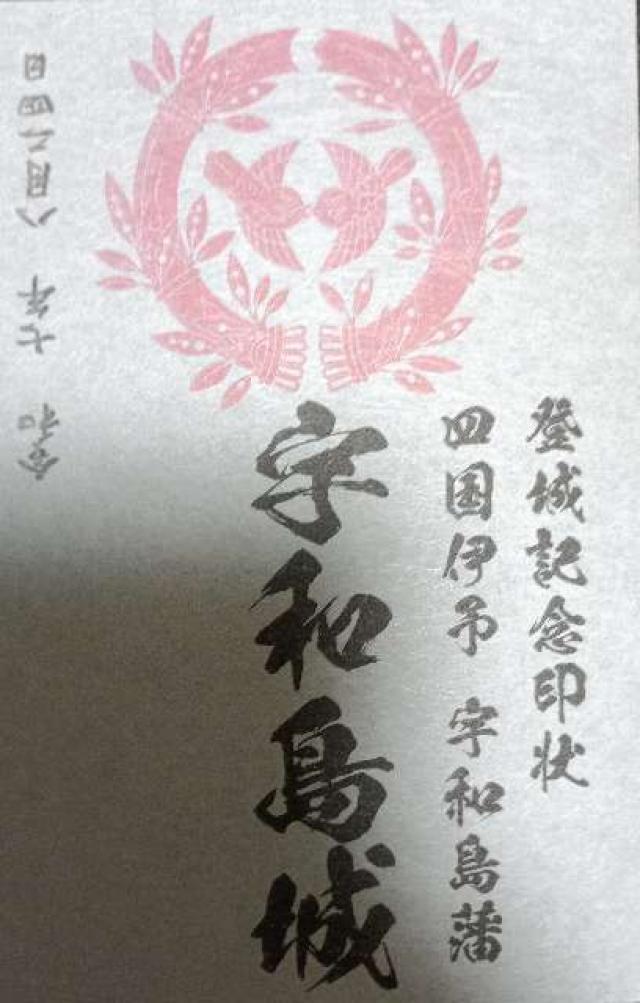 登城記念印状
四国伊予 宇和島藩
宇和島城
令和 七年 八月二四日